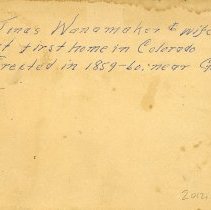 Jonas Wanamaker & wife
at first home in Colorado
Erected in 1859-60; near G
2012